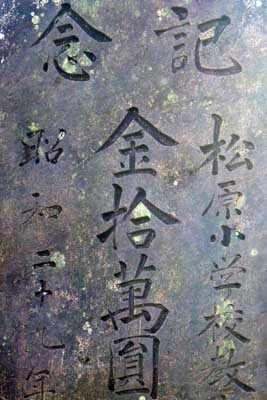 記念
松原小学校教
金拾萬圓
昭和二十九年